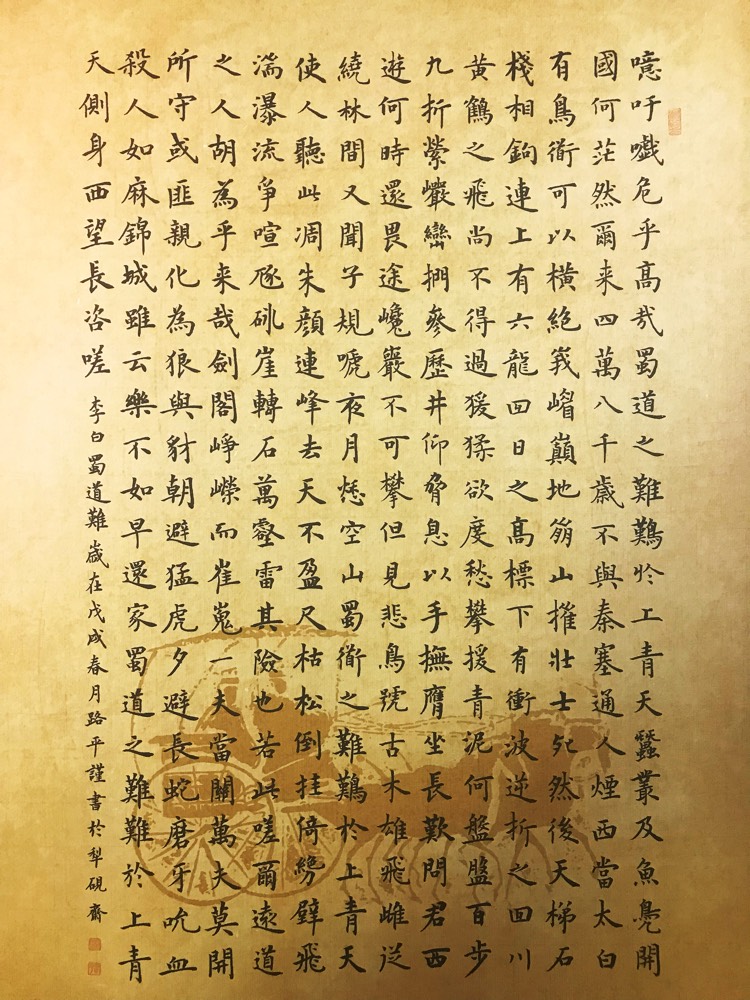 噫吁嚱危乎高哉蜀道之難難於上青天蠶叢及魚鳧開
國何茫然爾来四萬八千歲不與秦塞通人煙西當太白
有鳥衜可以橫絕峩嵋巔地崩山摧壯士死然後天梯石
棧相鉤連上有六龍回日之高標下有衝波逆折之回川
黃鶴之飛尚不得過猨猱欲度愁攀援青泥何盤盤百步
九折縈巖巒捫參歷井仰脅息以手撫膺坐長歎問君西
遊何時還畏途巉巖不可攀但見悲鳥號古木雄飛雌從
繞林間又聞子規嗁夜月愁空山蜀衜之難難於上青天
使人聽此凋朱顏連峰去天不盈尺枯松倒挂倚絕壁飛
湍瀑流爭喧豗砯崖轉石萬壑雷其險也若此嗟爾遠道
之人胡為乎来哉劍閣崢嶸而崔嵬一夫當關萬夫莫開
所守或匪親化為狼與豺朝避猛虎夕避長蛇磨牙吮血
殺人如麻錦城雖云樂不如早還家蜀道之難難於上青
天側身西望長咨嗟 李白蜀道難歲在戊戌春月路平謹書於犁硯齋